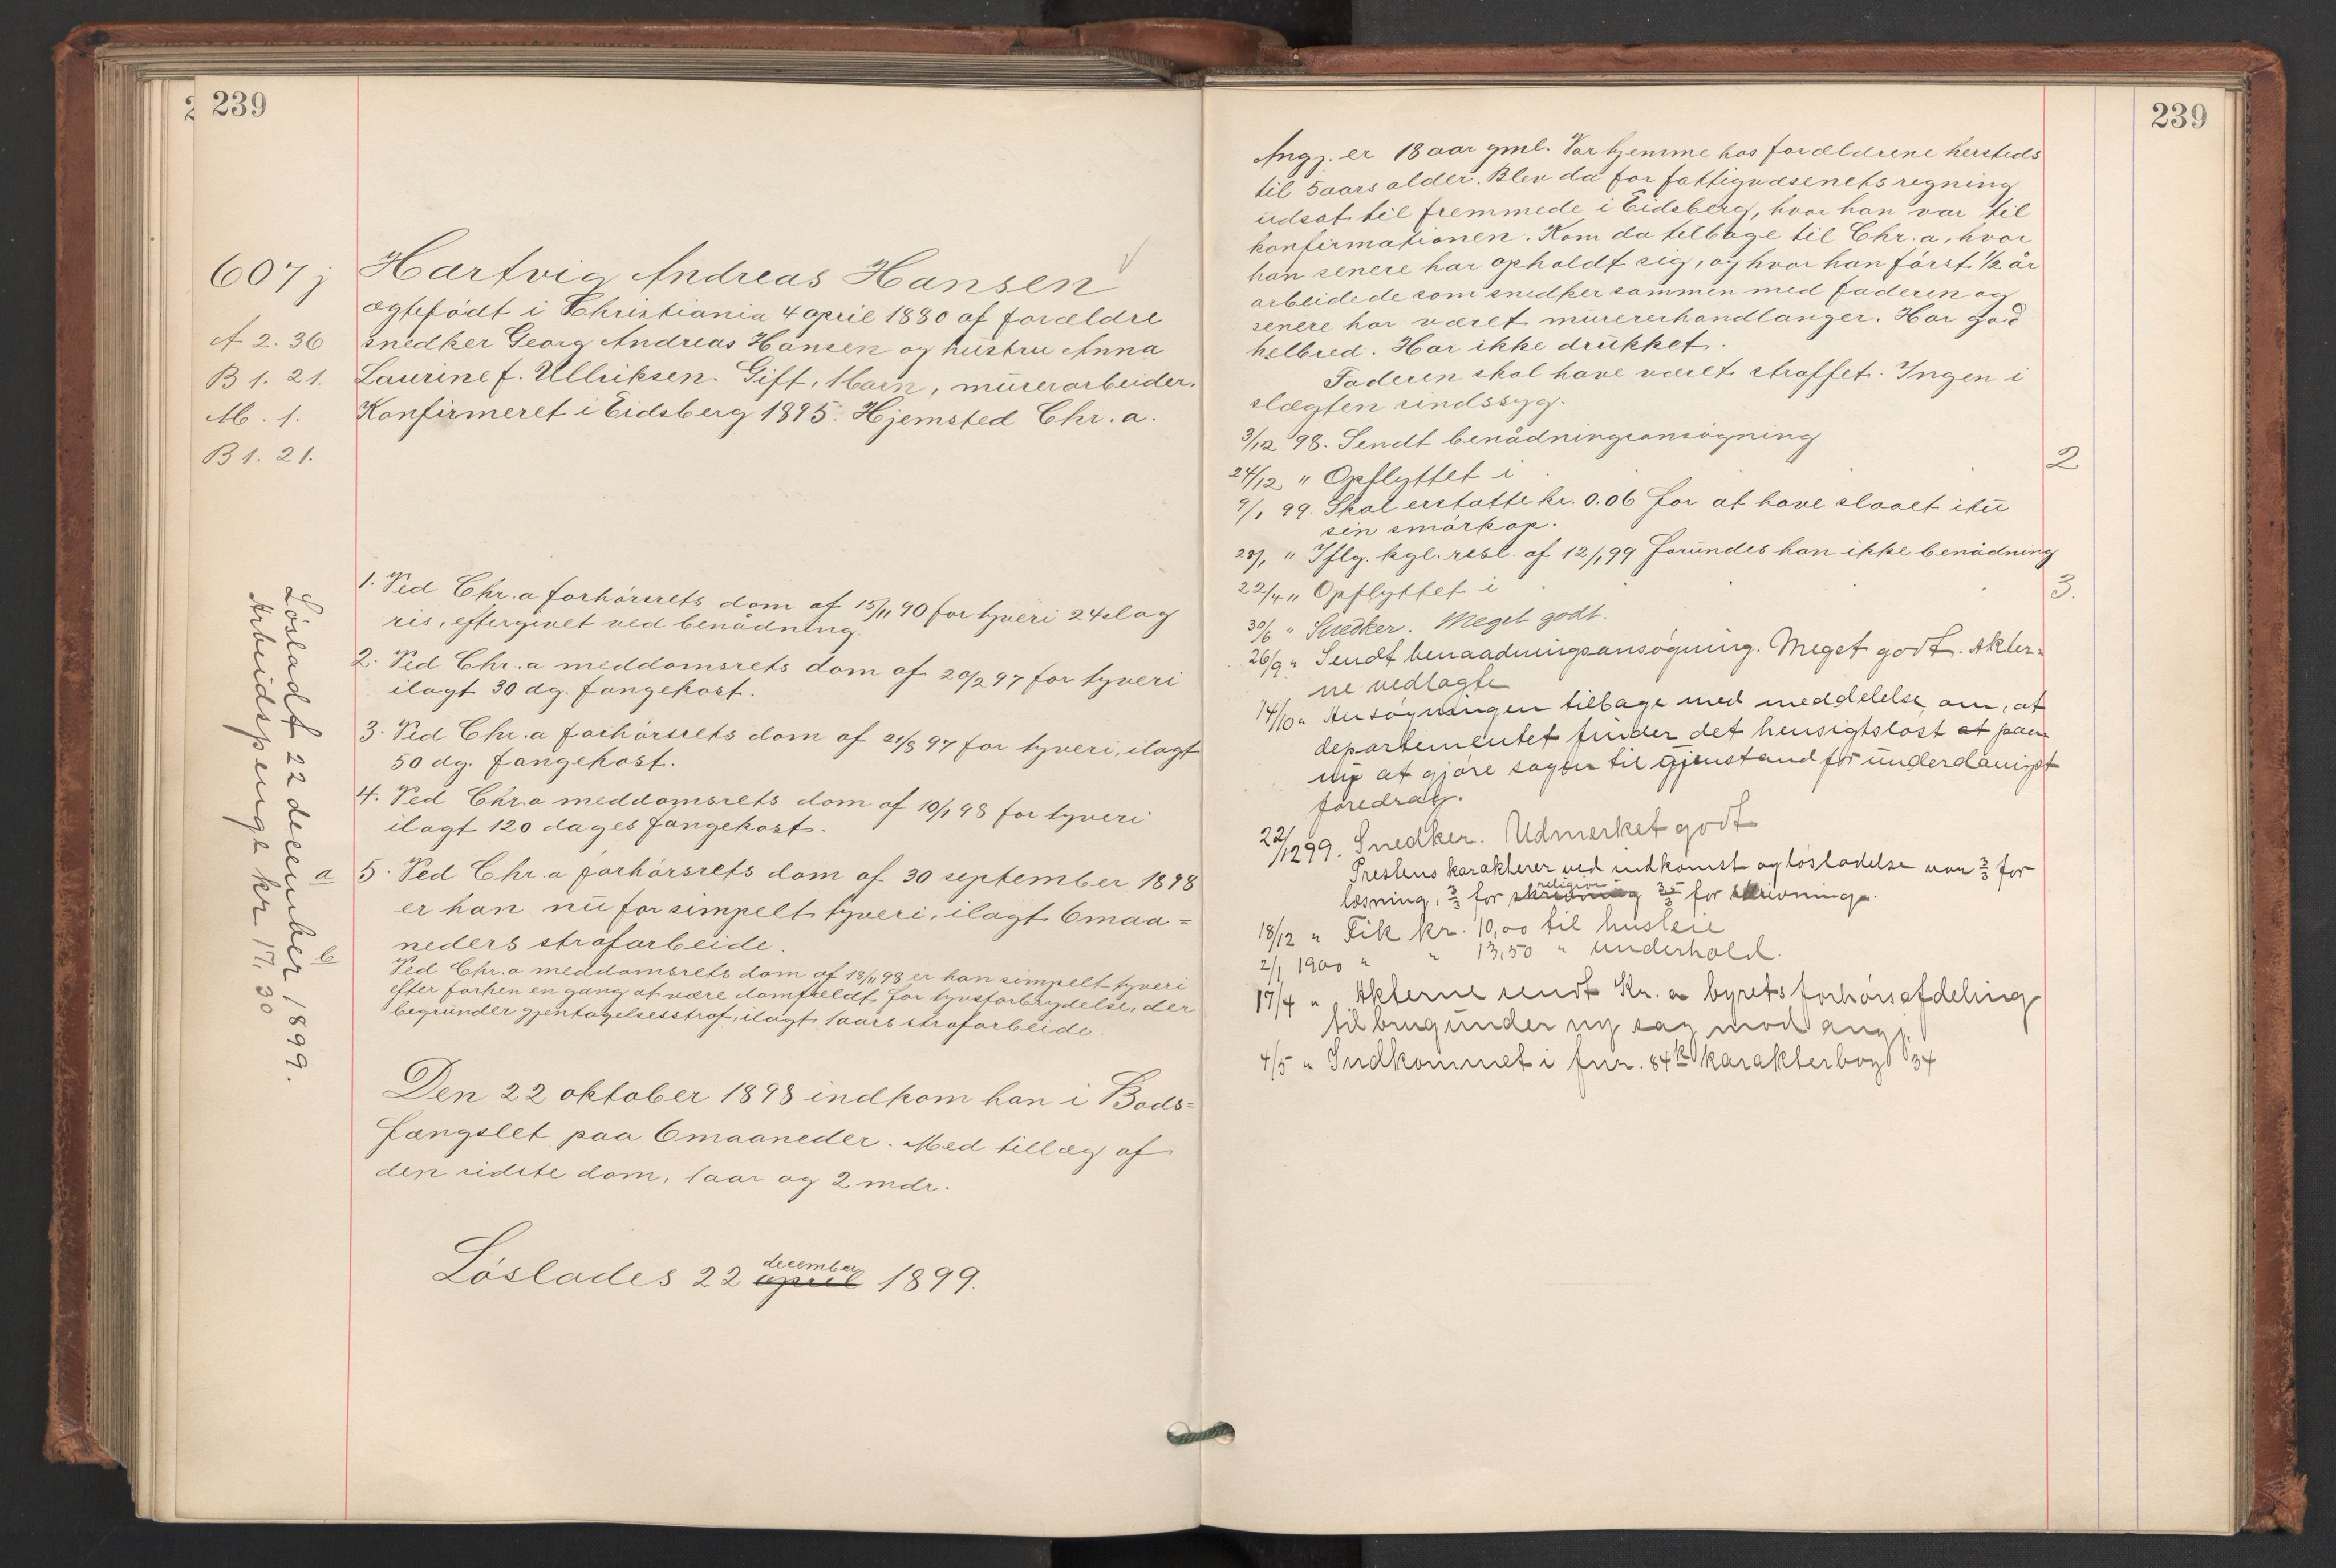 239
607 j
Hartvig Andreas Hansen
ægtefødt i Christiania 4 april 1880 af forældre
A 2. 36
snedker Georg Andreas Hansen og hustru Anna
B 1. 21.
Laurine f. Ullriksen. Gift, 1 barn, murerarbeider.
M. 1.
Konfirmeret i Eidsberg 1895. Hjemsted Chr.a.
B 1. 21.
1. Ved Chr.a forhørsrets dom af 15/11 90 for tyveri 24 slag
ris, eftergivet ved benådning.
2. Ved Chr.a meddomsrets dom af 20/2 97 for tyveri
ilagt 30 dg. fangekost.
3. Ved Chr.a forhørsrets dom af 21/8 97 for tyveri, ilagt
50 dg. fangekost.
4. Ved Chr.a meddomsrets dom af 10/1 98 for tyveri
ilagt 120 dages fangekost.
a
5. Ved Chr.a forhørsrets dom af 30 september 1898
er han nu for simpelt tyveri, ilagt 6 maa=
neders strafarbeide.
b
Ved Chr.a meddomsrets dom af 18/11 98 er han simpelt tyveri
efter forhen en gang at være domfældt for tyvsforbrydelse, der
begrunder gjentagelsesstraf, ilagt 1 aars strafarbeide.
Den 22 oktober 1898 indkom han i Bods=
fængslet paa 6 maaneder. Med tillæg af
den sidste dom, 1 aar og 2 mdr.
december
Løslades 22 april 1899.
Løsladt 22 december 1899.
Arbeidspenge kr. 17,30
239
Angj. er 18 aar gml. Var hjemme hos forældrene hersteds
til 5 aars alder. Blev da for fattigvæsenets regning
udsat til fremmede i Eidsberg, hvor han var til
konfirmationen. Kom da tilbage til Chr.a, hvor
han senere har opholdt sig, og hvor han først 1/2 år
arbeidede som snedker sammen med faderen og
senere har været murerhandlanger. Har god
helbred. Har ikke drukket.
Faderen skal have været straffet. Ingen i
slægten sindssyg.
3/12 98. Sendt benådningsansøgning
24/12 " Opflyttet i . . . 2
9/1 99. Skal erstatte kr. 0.06 for at have slaaet itu
sin smørkop.
28/1 " Iflg. kgl. resl. af 12/1 99 forundes han ikke benådning
22/4 " Opflyttet i . . . 3.
30/6 " Snedker. Meget godt.
26/9 " Sendt benaadningsansøgning. Meget godt. Akter=
ne vedlagte
14/10 " Ansøgningen tilbage med meddelelse om, at
departementet finder det hensigtsløst at paa
ny at gjøre sagen til gjenstand for underdanigst
foredrag.
22/12 99. Snedker. Udmerket godt
Prestens karakterer ved indkomst og løsladelse var 3/3 for
religion
læsning, 3/3 for skrivning 3,5/3 for skrivning.
18/12 " Fik kr. 10,00 til husleie
2/1 1900 " " 13,50 " underhold.
17/4 " Akterne sendt Kr.a byrets forhørsafdeling
til brug under ny sag mod angj.
4/5 " Indkommet i fnr. 84 k karakterbog 34